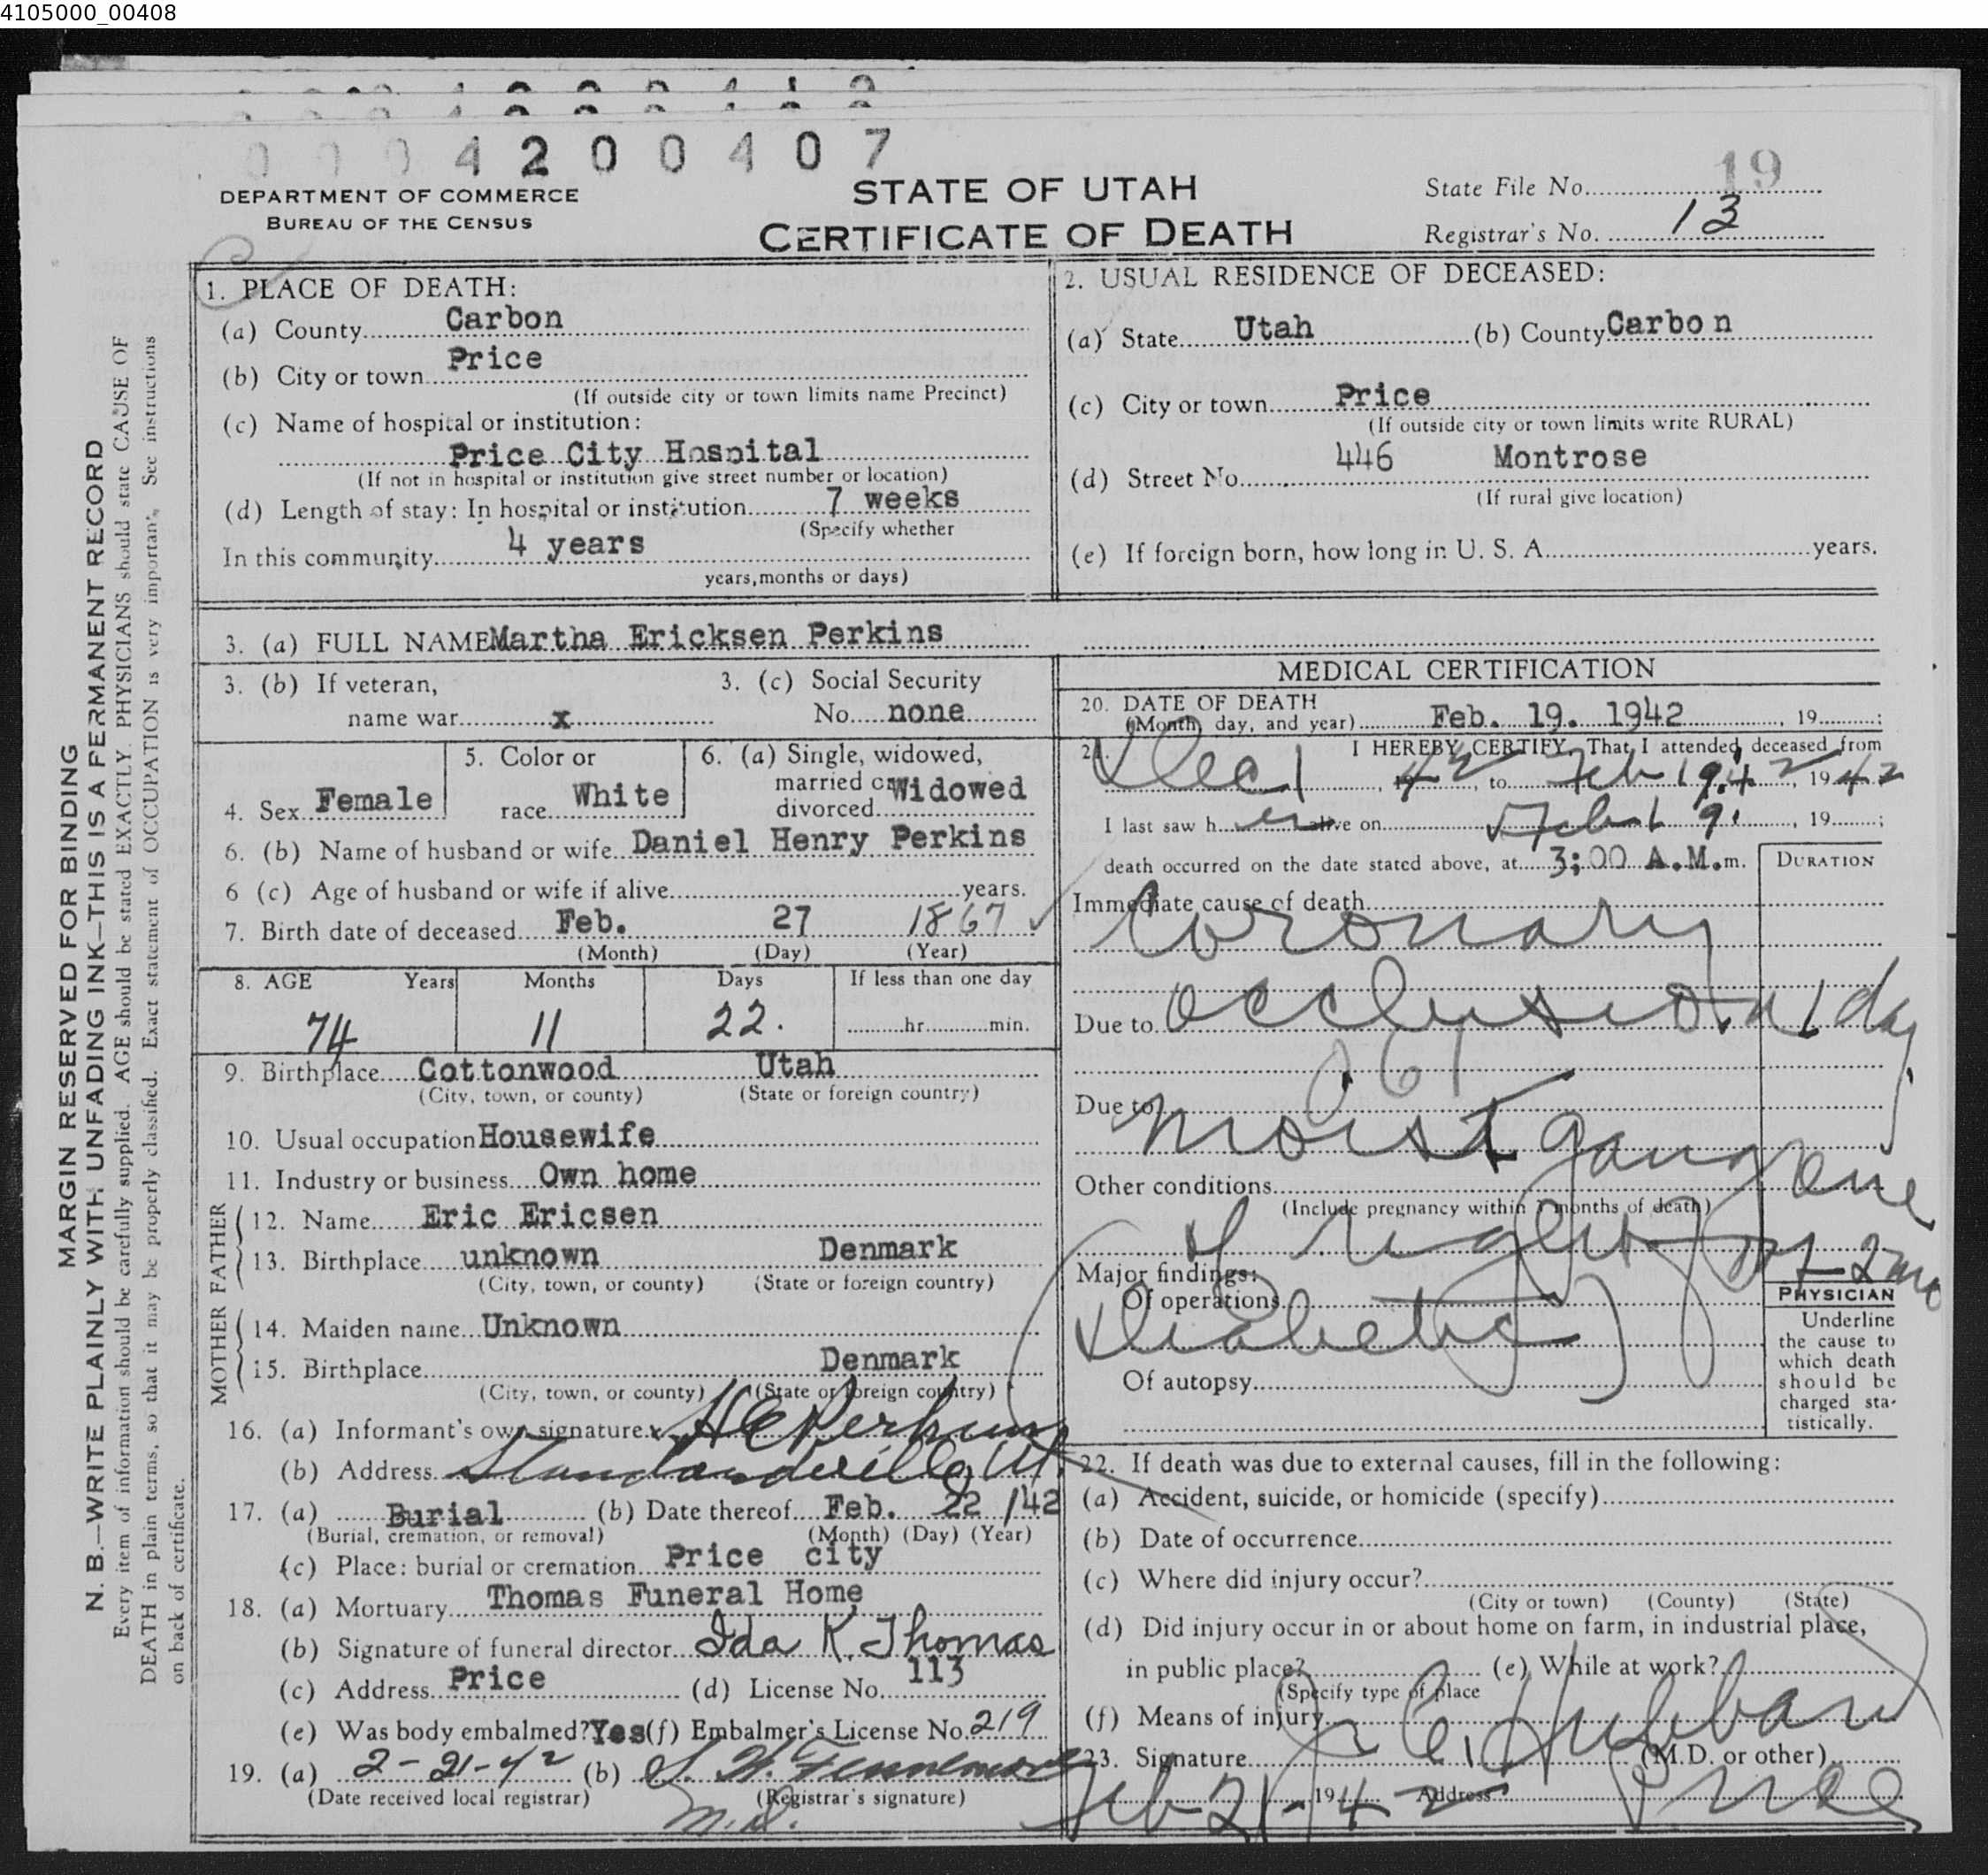 4105000_00408
0004200407
DEPARTMENT OF COMMERCE
BUREAU OF THE CENSUS
STATE OF UTAH
CERTIFICATE OF DEATH
State File No. 19
Registrar's No. 13
MARGIN RESERVED FOR BINDING
N. B.—WRITE PLAINLY WITH UNFADING INK—THIS IS A PERMANENT RECORD
Every item of information should be carefully supplied. AGE should be stated EXACTLY. PHYSICIANS should state CAUSE OF
DEATH in plain terms, so that it may be properly classified. Exact statement of OCCUPATION is very important. See instructions
on back of certificate.
1. PLACE OF DEATH:
(a) County Carbon
(b) City or town Price
(If outside city or town limits name Precinct)
(c) Name of hospital or institution:
Price City Hospital
(If not in hospital or institution give street number or location)
(d) Length of stay: In hospital or institution 7 weeks
(Specify whether
In this community 4 years
years, months or days)
2. USUAL RESIDENCE OF DECEASED:
(a) State Utah (b) County Carbon
(c) City or town Price
(If outside city or town limits write RURAL)
(d) Street No. 446 Montrose
(If rural give location)
(e) If foreign born, how long in U. S. A. years.
3. (a) FULL NAME Martha Ericksen Perkins
3. (b) If veteran,
name war x
3. (c) Social Security
No. none
4. Sex Female
5. Color or
race White
6. (a) Single, widowed,
married or
divorced Widowed
6. (b) Name of husband or wife Daniel Henry Perkins
6 (c) Age of husband or wife if alive years.
7. Birth date of deceased Feb. 27 1867
(Month) (Day) (Year)
8. AGE Years Months Days If less than one day
74 11 22. hr. min.
9. Birthplace Cottonwood Utah
(City, town, or county) (State or foreign country)
10. Usual occupation Housewife
11. Industry or business Own home
FATHER
12. Name Eric Ericsen
13. Birthplace unknown Denmark
(City, town, or county) (State or foreign country)
MOTHER
14. Maiden name Unknown
15. Birthplace Denmark
(City, town, or county) (State or foreign country)
16. (a) Informant's own signature x H C Perkins
(b) Address Standardville, Ut.
17. (a) Burial (b) Date thereof Feb. 22 /42
(Burial, cremation, or removal) (Month) (Day) (Year)
(c) Place: burial or cremation Price city
18. (a) Mortuary Thomas Funeral Home
(b) Signature of funeral director Ida K. Thomas
(c) Address Price (d) License No. 113
(e) Was body embalmed? Yes (f) Embalmer's License No. 219
19. (a) 2-21-42 (b) Fennemore
(Date received local registrar) (Registrar's signature)
M.D.
MEDICAL CERTIFICATION
20. DATE OF DEATH
(Month, day, and year) Feb. 19. 1942, 19 ;
21. I HEREBY CERTIFY, That I attended deceased from
Dec 1, 42, to Feb 19 42, 1942
I last saw her alive on Feb 19, 19 ;
death occurred on the date stated above, at 3:00 A.M. m.
DURATION
Immediate cause of death
Coronary
Due to occlusion 1 day
Due to
moist gangrene
Other conditions
(Include pregnancy within 3 months of death)
of right 2 mo
Major findings:
Of operations
Diabetic
Of autopsy
PHYSICIAN
Underline
the cause to
which death
should be
charged sta-
tistically.
22. If death was due to external causes, fill in the following:
(a) Accident, suicide, or homicide (specify)
(b) Date of occurrence
(c) Where did injury occur?
(City or town) (County) (State)
(d) Did injury occur in or about home on farm, in industrial place,
in public place? (e) While at work?
(Specify type of place
(f) Means of injury
23. Signature C. Hubbard (M.D. or other)
Feb 21-1942 Address Price